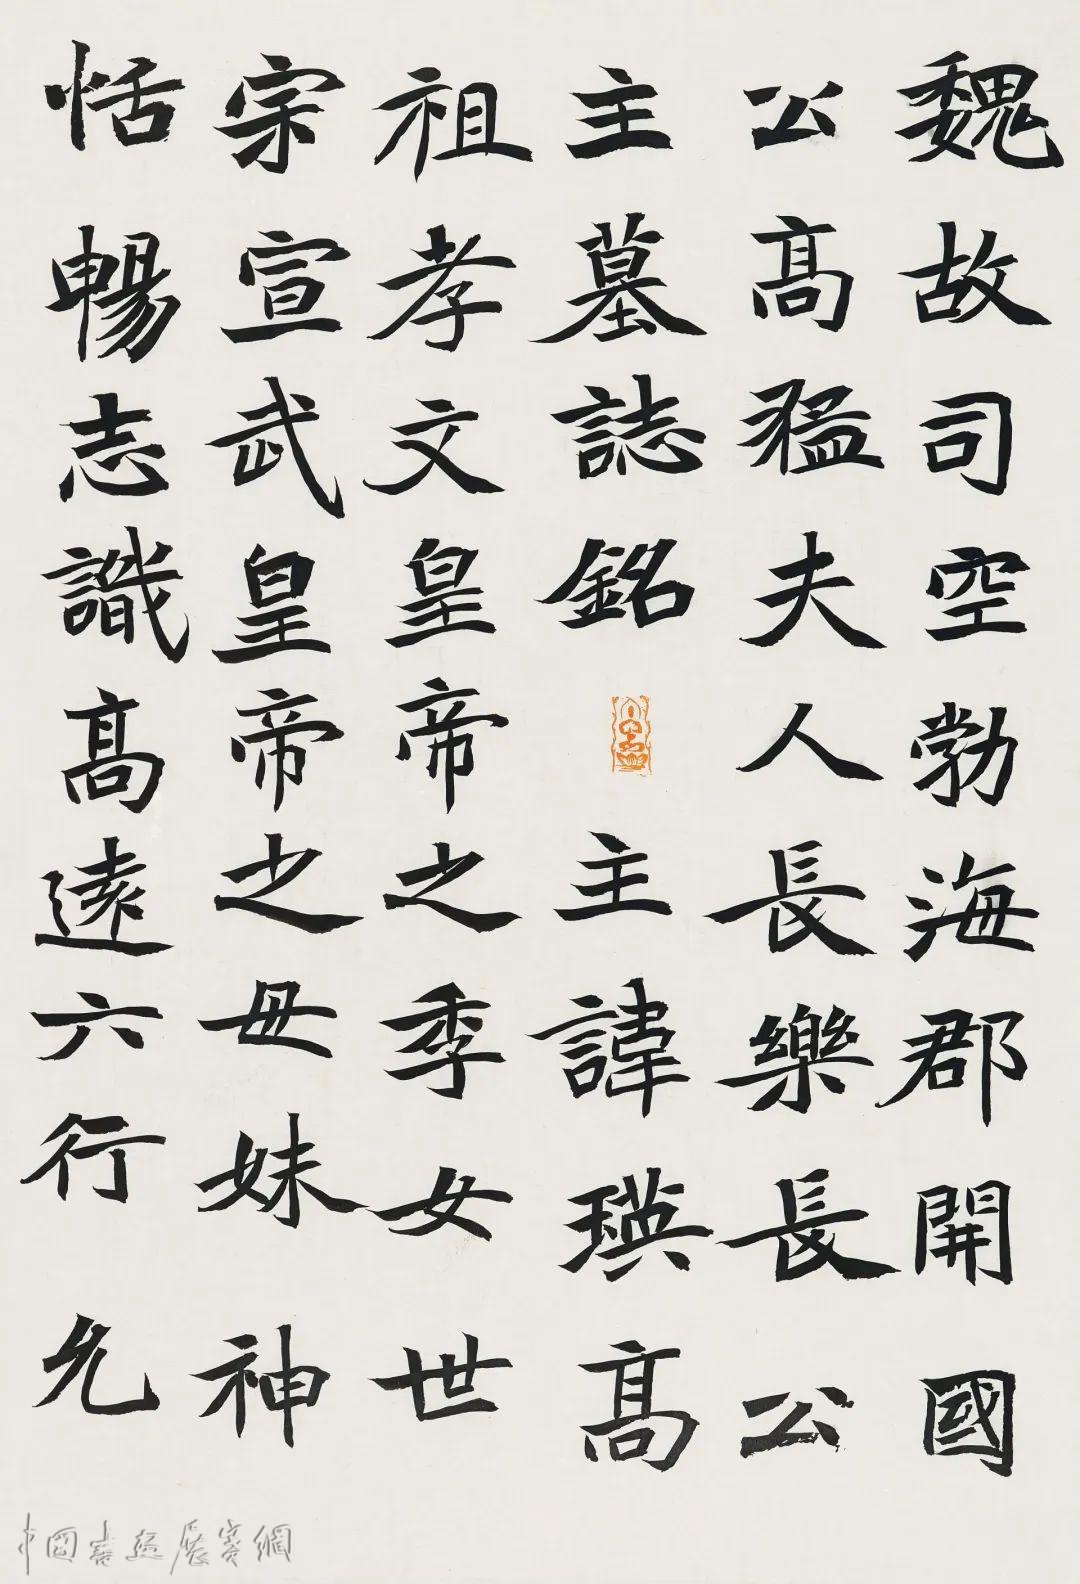 魏故司空勃海郡開國
公高猛夫人長樂長公
主墓誌銘 主諱瑛高
祖孝文皇帝之季女世
宗宣武皇帝之母妹神
恬暢志識高遠六行允
中国書画展賽網